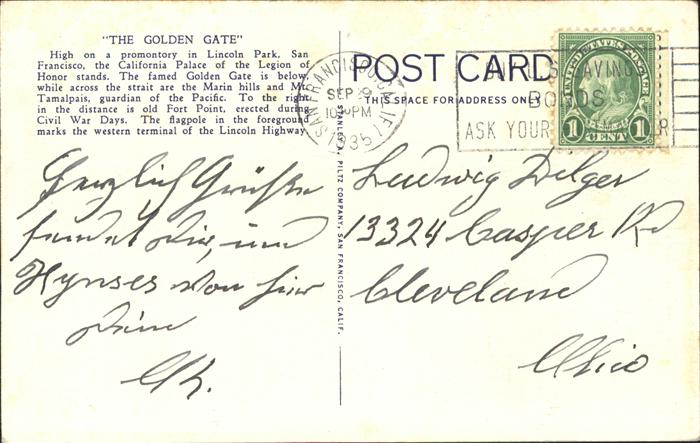 "THE GOLDEN GATE"
High on a promontory in Lincoln Park, San
Francisco, the California Palace of the Legion of
Honor stands. The famed Golden Gate is below,
while across the strait are the Marin hills and Mt.
Tamalpais, guardian of the Pacific. To the right
in the distance is old Fort Point, erected during
Civil War Days. The flagpole in the foreground
marks the western terminal of the Lincoln Highway.
Herzlich Grüße
sendet Dir, und
von hier
Dein
STANLEY A. PILTZ COMPANY, SAN FRANCISCO, CALIF.
POST CARD
THIS SPACE FOR ADDRESS ONLY
SAN FRANCISCO, CALIF.
SEP 29
PM
1935
SAVINGS
BONDS
ASK YOUR
UNITED STATES POSTAGE
1 CENT 1
Ludwig Dilger
13324 Casper Rd
Cleveland
Ohio